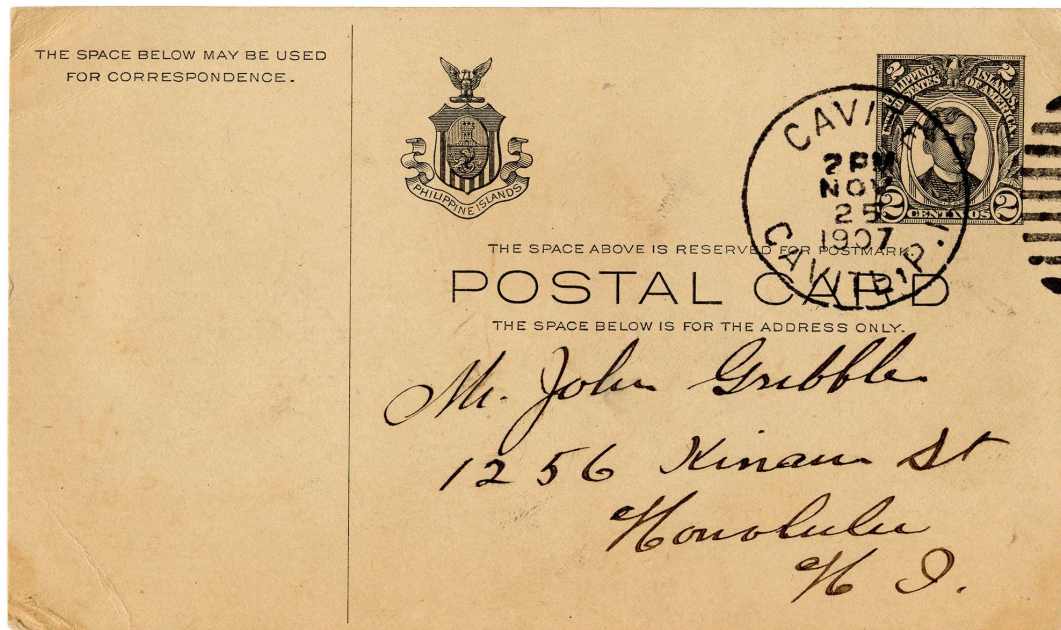 THE SPACE BELOW MAY BE USED
FOR CORRESPONDENCE.
PHILIPPINE ISLANDS
2 2
PHILIPPINE ISLANDS
UNITED STATES OF AMERICA
2 CENTAVOS 2
CAVITE
2 PM
NOV
25
1907
CAVITE, P.I.
THE SPACE ABOVE IS RESERVED FOR POSTMARK.
POSTAL CARD
THE SPACE BELOW IS FOR THE ADDRESS ONLY.
Mr. John Gribble
1256 Kinau St
Honolulu
H I.